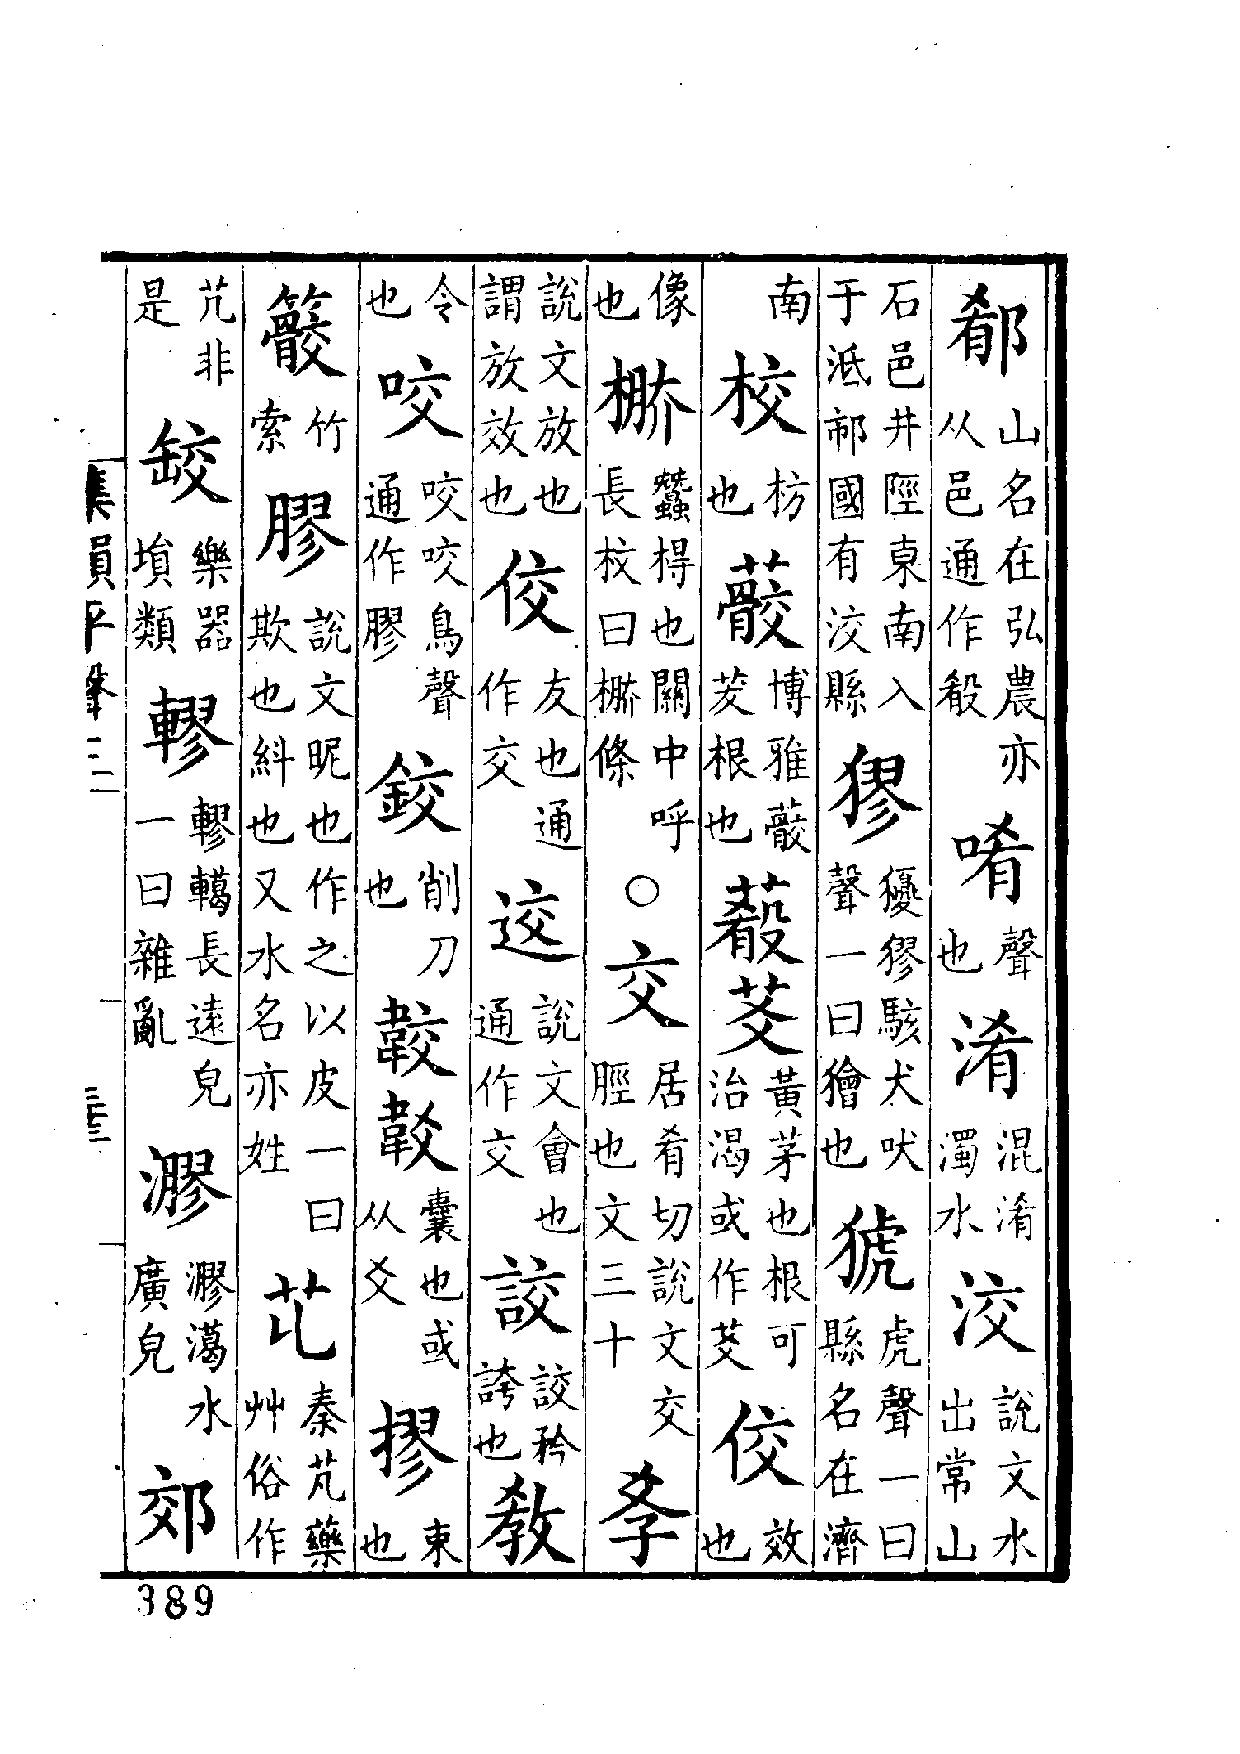 郩山名在弘農亦从邑通作殽㗛聲也淆混淆濁水洨說文水出常山
石邑井陘東南入于泜國有洨縣㺒獿㺒駭犬吠聲一曰獪也猇虎聲一曰縣名在濟
南校枋也博雅茭根也黃茅也根可治渴或作佼效也
像也蠶㯖也關中呼長校曰條○交居肴切說文交脛也文三十𡥉
說文放也謂放效也佼友也通作交䢒說文會也通作交詨詨矜誇也敎
令也咬咬咬鳥聲通作膠鉸削刀也囊也或从爻摎束也
竹索膠說文昵也作之以皮一曰欺也糾也又水名亦姓秦艽藥艸俗作
芃非是樂器塤類轇轇轕長遠皃一曰雜亂水廣皃郊
集韻平聲三
389